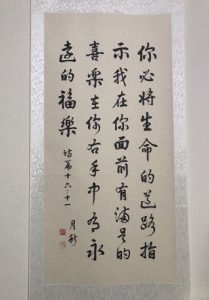 你必将生命的道路指
示我在你面前有满足的
喜樂在你右手中有永
遠的福樂 詩篇十六:十一